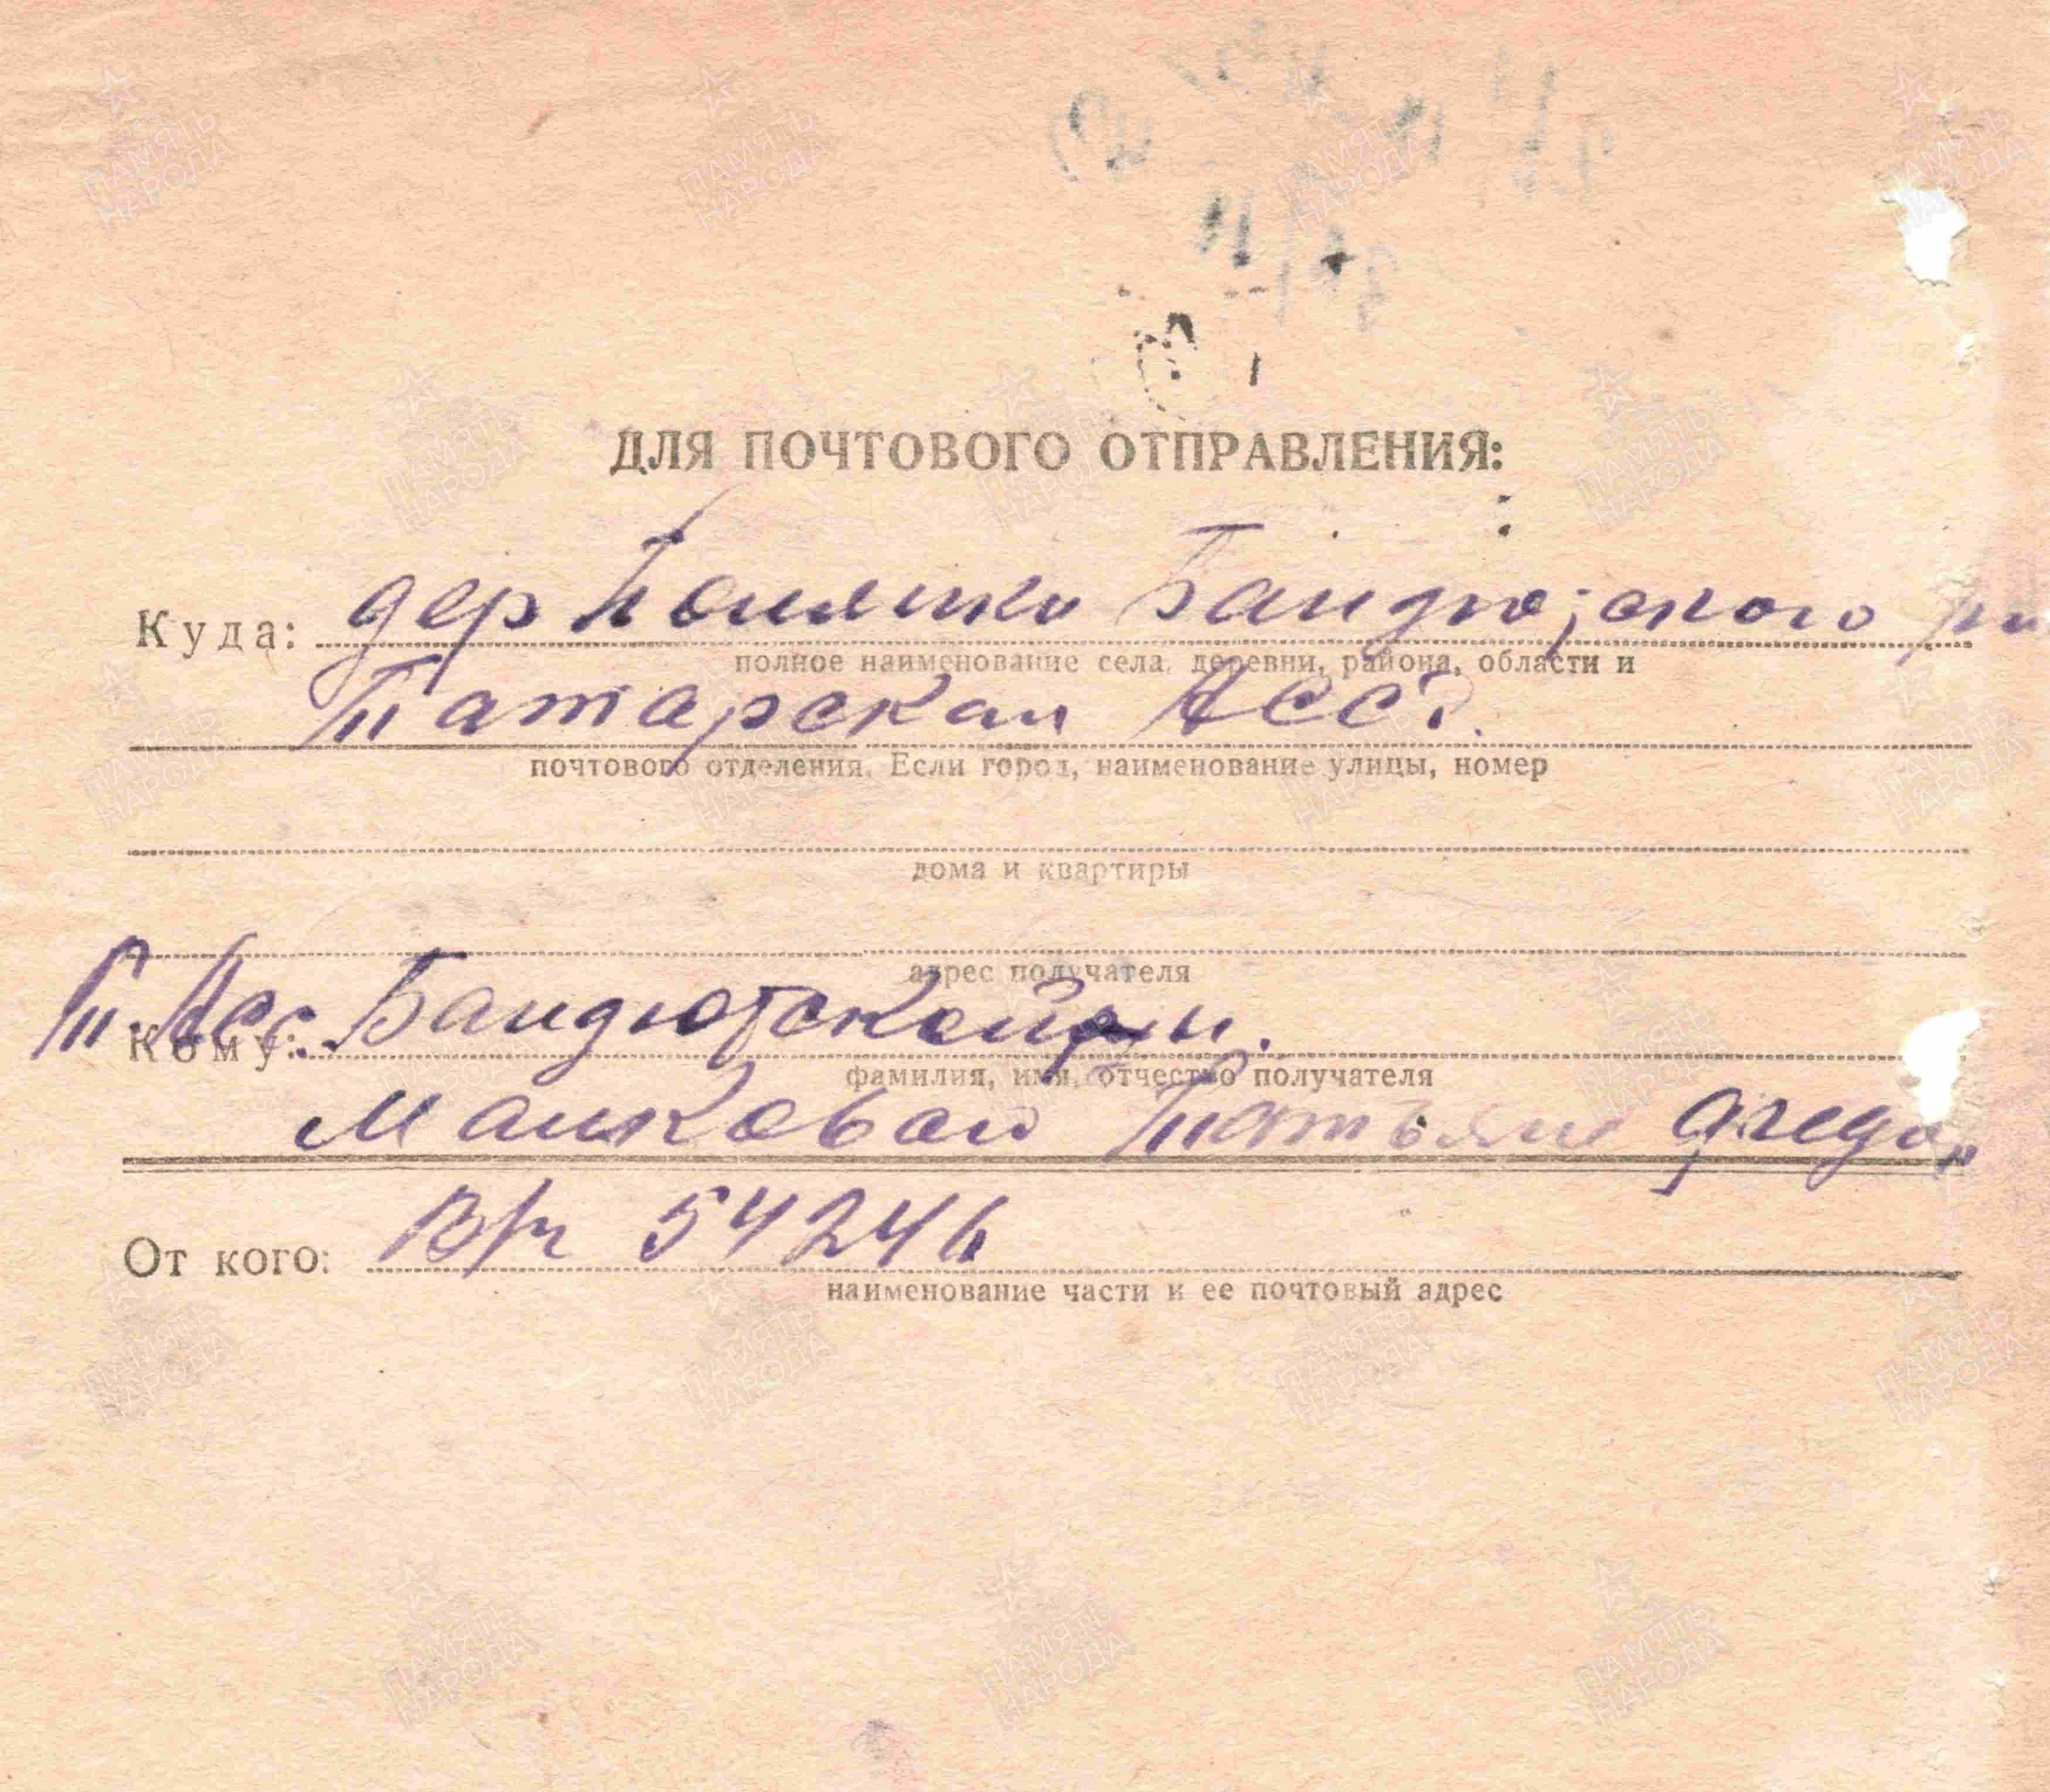 ДЛЯ ПОЧТОВОГО ОТПРАВЛЕНИЯ:
Куда: дер Бандюжского
полное наименование села, деревни, района, области и
Татарская АССР.
почтового отделения. Если город, наименование улицы, номер
дома и квартиры
адрес получателя
Кому: Т. Асс. Бандюгской
фамилия, имя, отчество получателя
Маиковой Татьяне
От кого: В/ч 54246
наименование части и ее почтовый адрес
ПАМЯТЬ НАРОДА